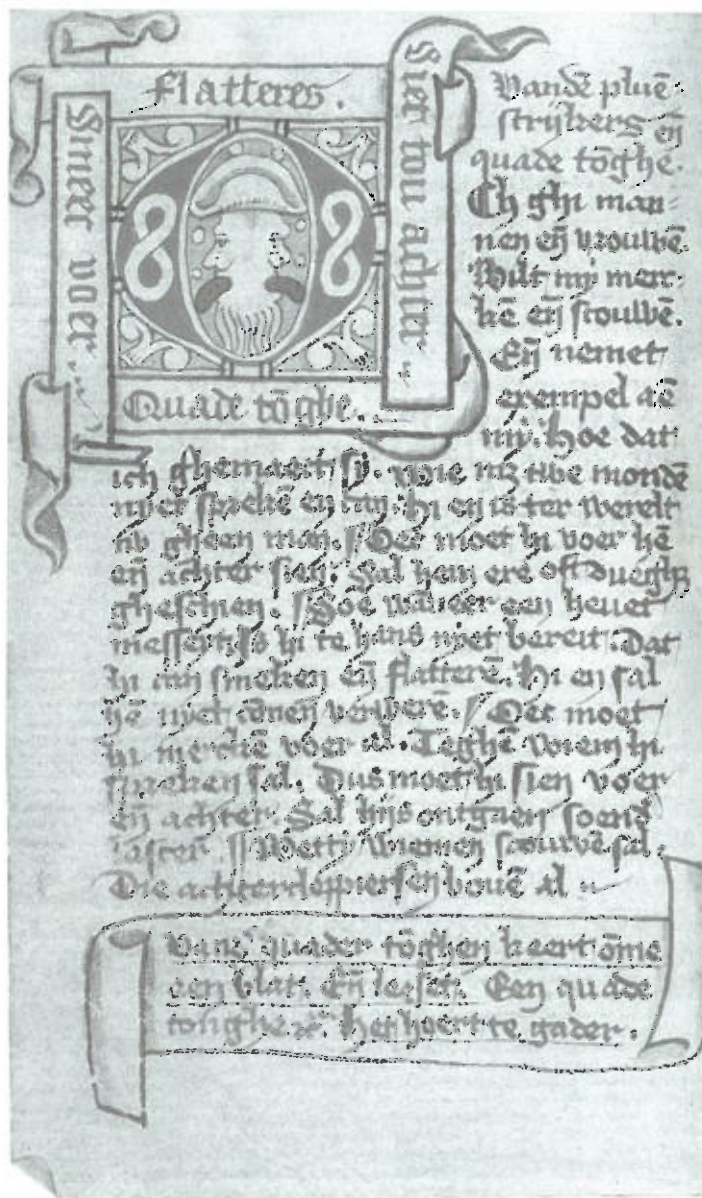 flatteres.
Smeer voer.
Siet tou achter.
Quade tōghe.
Vandē pluē
strijkers eñ
quade tōghe.
Ch ghi man
nen eñ vrouwē.
Wilt mi mer
kē eñ scouwē.
Eñ nemet
exempel aē
mi. hoe dat
ich ghemaect si. Wie mz twe mondē
niet sprekē en can. hi en is ter werelt
nv gheen man. Oec moet hi voer hē
eñ achter sien. Sal hem ere oft
ghescien. Soe waer een heuet
hi te hans niet bereit. Dat
hi can smeken eñ flatterē. hi en sal
hē niet connen verwerē. Oec moet
hi merckē voer al. Teghē wiem hi
spreken sal. Dus moet hi sien voer
eñ achter. Sal hijs ontgaen
laster. wiemen scouwē sal.
Die achterclappers eñ bouē al
quader tōghen keert ōme
een blat. Eñ leeset. Een quade
tonghe. Het hoert te gader.